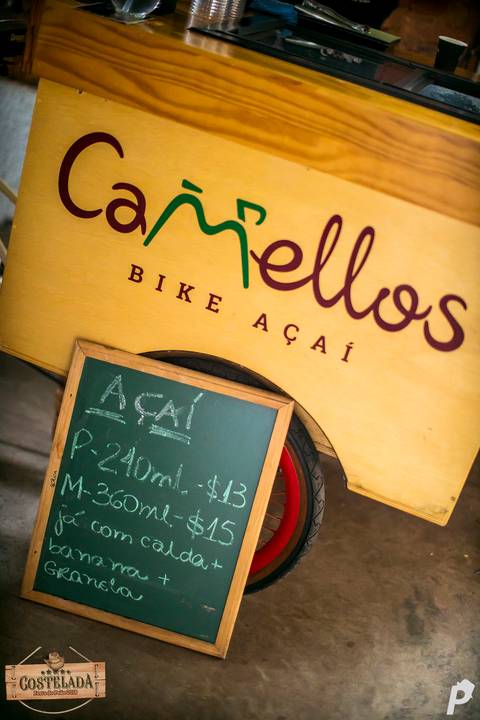 Camellos
BIKE AÇAÍ
AÇAÍ
P-240ml-$13
M-360ml-$15
já com calda+
banana +
GRANOLA
COSTELADA